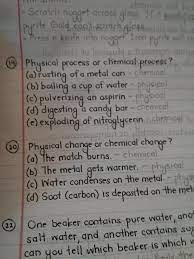 Scratch nugget across glass. If
pyrite Gold can't scratch glass
19 Physical process or chemical process?
(a) rusting of a metal can - chemical
(b) boiling a cup of water - physical
(c) pulverizing an aspirin - physical
(d) digesting a candy bar - chemical
(e) exploding of nitroglycerin - chemical
20 Physical change or chemical change?
(a) The match burns. - chemical
(b) The metal gets warmer. - physical
(c) Water condenses on the metal. -
(d) Soot (carbon) is deposited on the met
22 One beaker contains pure water, ano
salt water, and another contains sug
can you tell which beaker is which w